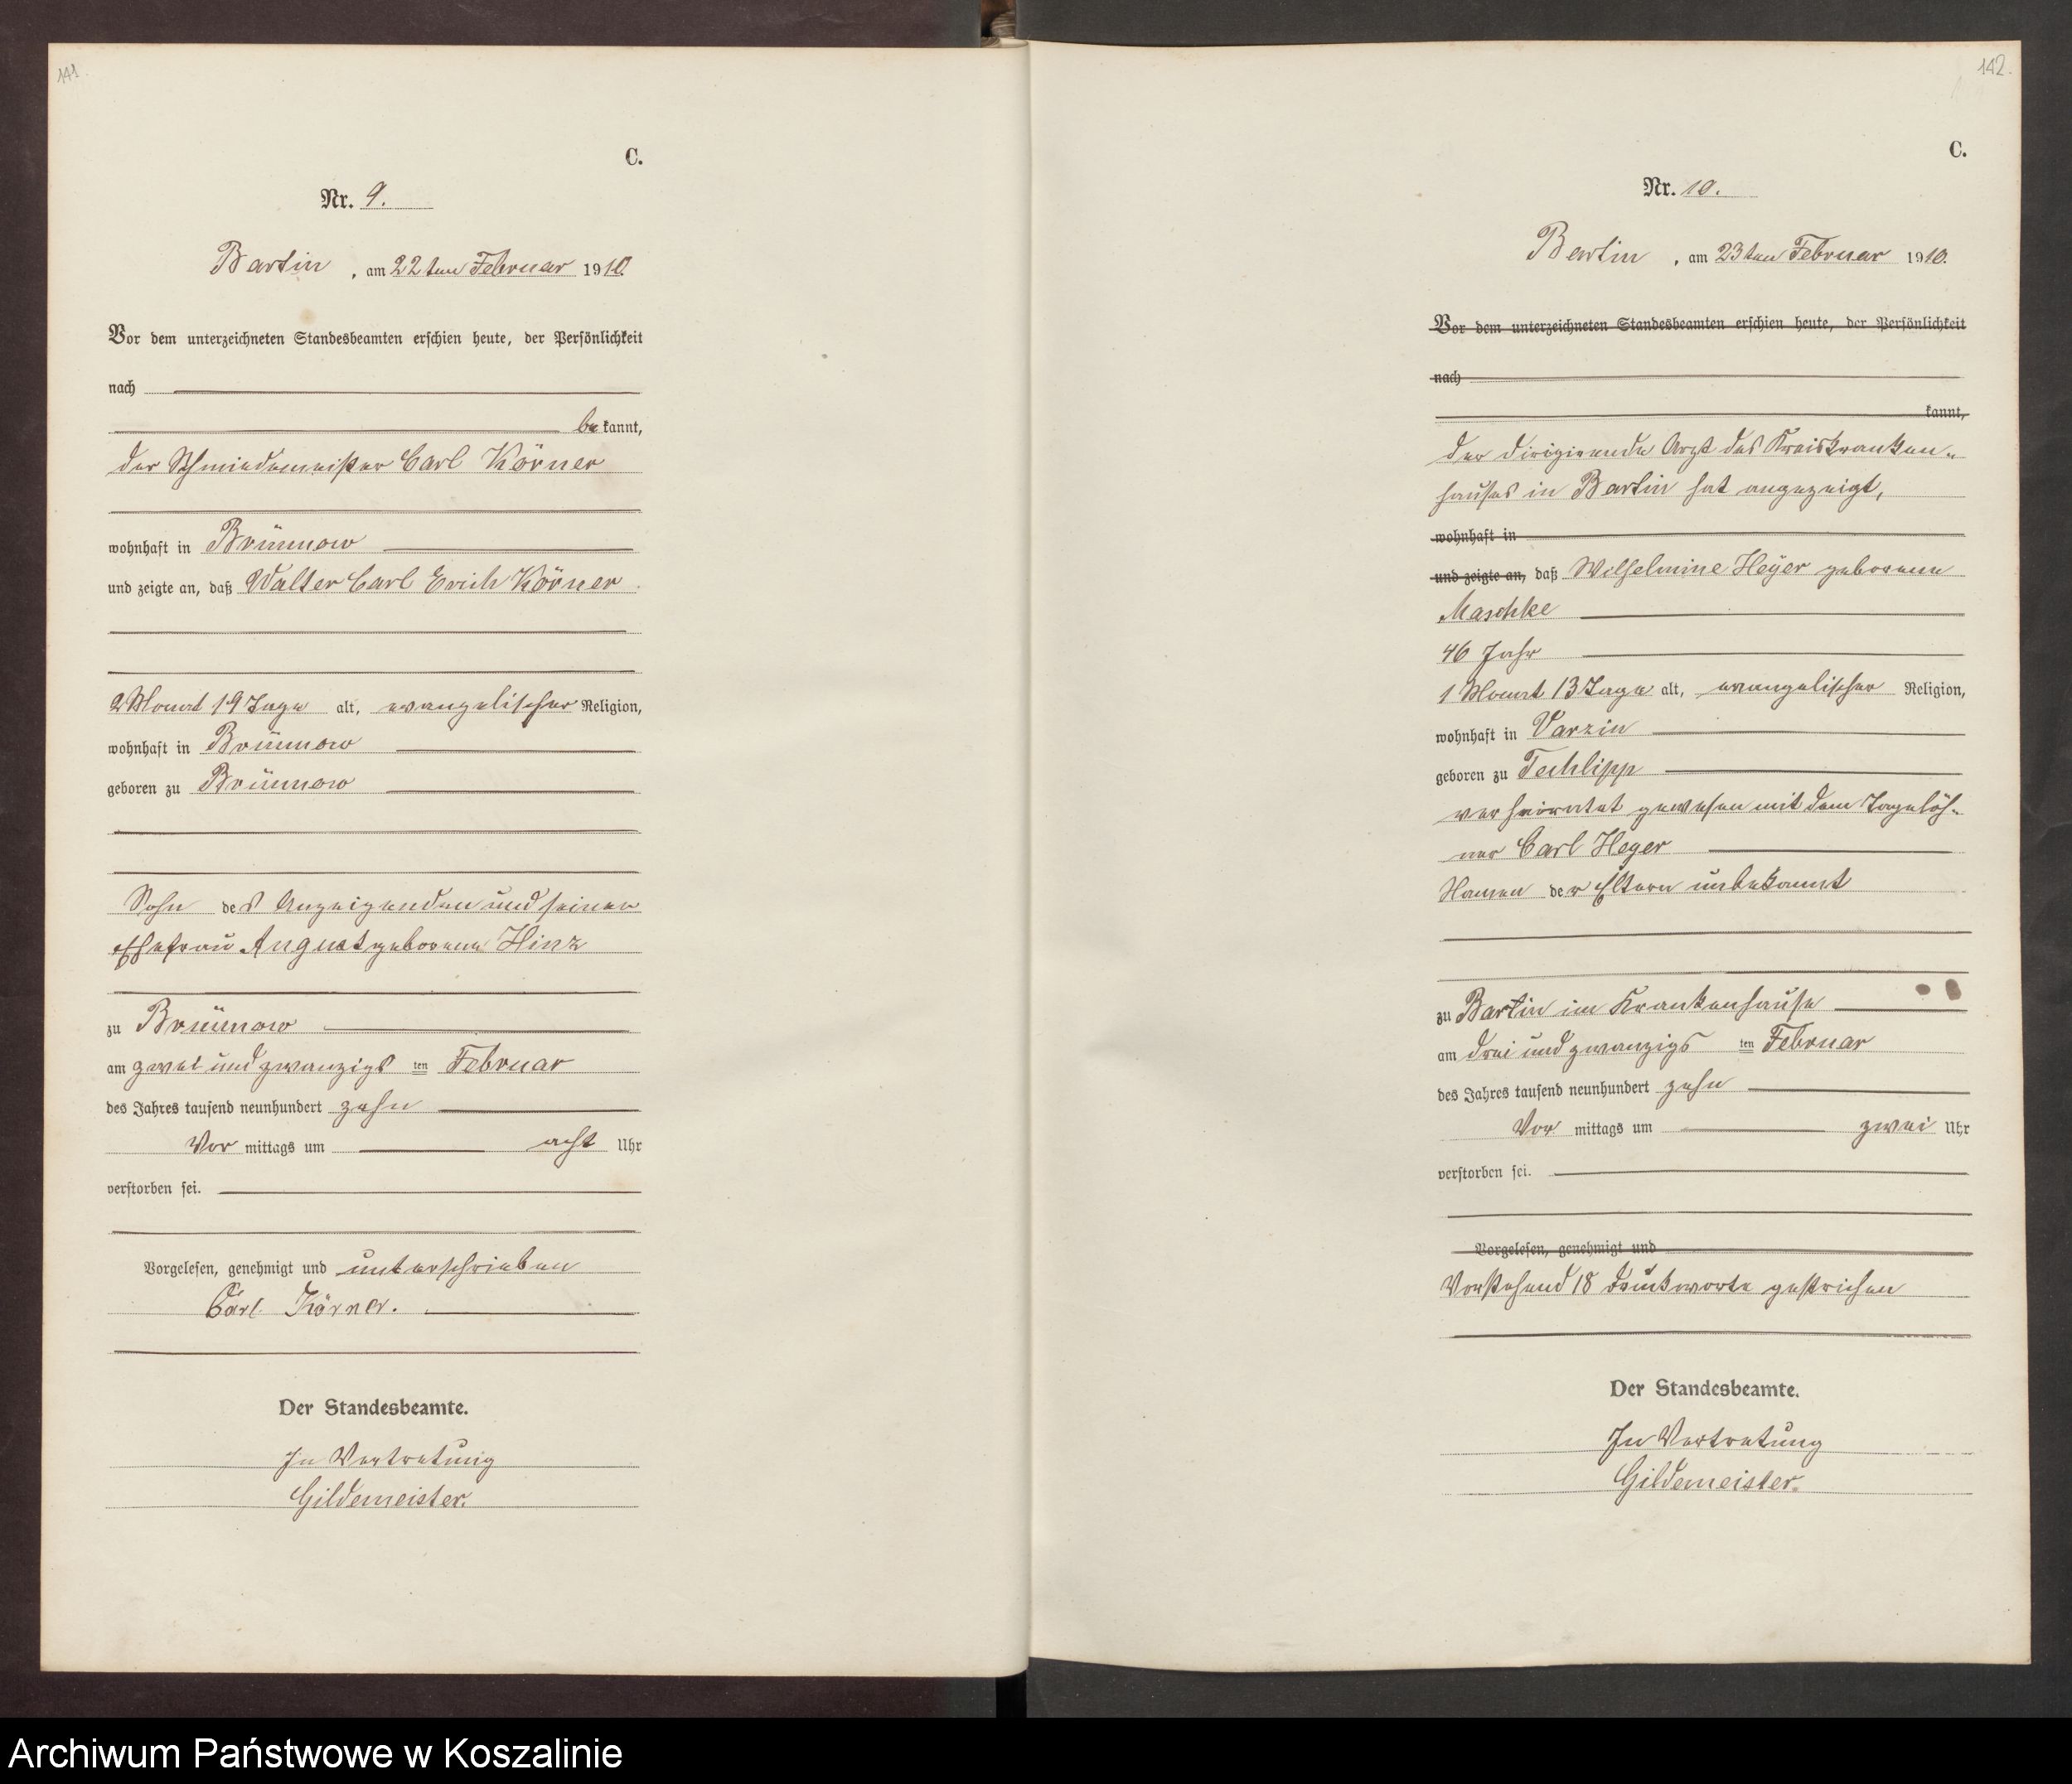 141.
C.
Nr. 9.
Bartin, am 22ten Februar 1910.
Vor dem unterzeichneten Standesbeamten erschien heute, der Persönlichkeit
nach
bekannt,
der Schmiedemeister Carl Körner
wohnhaft in Brünnow
und zeigte an, daß Walter Carl Erich Körner
2 Monat 19 Tage alt, evangelischer Religion,
wohnhaft in Brünnow
geboren zu Brünnow
Sohn des Anzeigenden und seiner
Ehefrau August geborene Hinz
zu Brünnow
am zwei und zwanzigsten Februar
des Jahres tausend neunhundert zehn
Vor mittags um acht Uhr
verstorben sei.
Vorgelesen, genehmigt und unterschrieben
Carl Körner.
Der Standesbeamte.
In Vertretung
Gildemeister.
142.
C.
Nr. 10.
Bartin, am 23ten Februar 1910.
Vor dem unterzeichneten Standesbeamten erschien heute, der Persönlichkeit
nach
kannt,
Der dirigierende Arzt des Kreiskranken-
hauses in Bartin hat angezeigt,
wohnhaft in
und zeigte an, daß Wilhelmine Heyer geborene
Maschke
46 Jahr
1 Monat 13 Tage alt, evangelischer Religion,
wohnhaft in Varzin
geboren zu Techlipp
verheiratet gewesen mit dem Tagelöh-
ner Carl Heyer
Namen der Eltern unbekannt
zu Bartin im Krankenhause
am drei und zwanzigsten Februar
des Jahres tausend neunhundert zehn
Vor mittags um zwei Uhr
verstorben sei.
Vorgelesen, genehmigt und
Vorstehend 18 Druckworte gestrichen
Der Standesbeamte.
In Vertretung
Gildemeister.
Archiwum Państwowe w Koszalinie